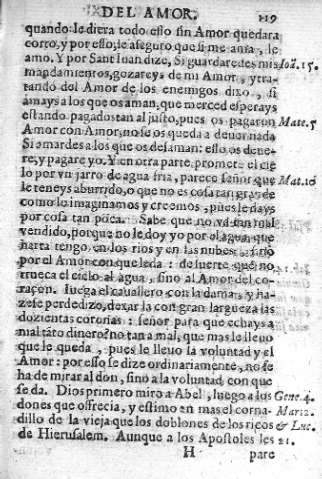 DEL AMOR. 119
quando le diera todo esso sin Amor quedara
corto, y por esso, le aseguro que si me ama, le
amo. Y por San Iuan dize, Si guardaredes mis Ioã. 15.
mandamientos, gozareys de mi Amor, y tra-
tando del Amor de los enemigos dixo, si
amays a los que os aman, que merced esperays
estando pagados tan al justo, pues os pagaron Mate. 5
Amor con Amor, no se os queda a dever nada
Si amardes a los que os desaman: esso os deue-
re, y pagare yo. Y en otra parte promete el cie
lo por vn jarro de agua fria, parece señor que Mat. 10
le teneys aburrido, o que no es cosa tan grande
como le imaginamos y creemos, pues le days
por cosa tan poca. Sabe que no va tan mal
vendido, porque no le doy yo por el agua, que
harta tengo en los rios y en las nubes, sino
por el Amor con que le da: de suerte que no
trueca el cielo al agua, sino al Amor del co-
raçon. Iuega el cauallero con la dama, y ha-
zese perdedizo, dexar la con gran largueza las
dozientas coronas: señor para que echays a
mal tãto dinero? no tan a mal, que mas le lleuo
que le queda, pues le lleuo la voluntad y el
Amor: por esso se dize ordinariamente, no se
ha de mirar al don, sino a la voluntad con que
se da. Dios primero miro a Abel, luego a los Gene. 4.
dones que ofrecia, y estimo en mas el corna-
dillo de la vieja que los doblones de los ricos & Luc.
de Hierusalem. Aunque a los Apostoles les 21.
H pare